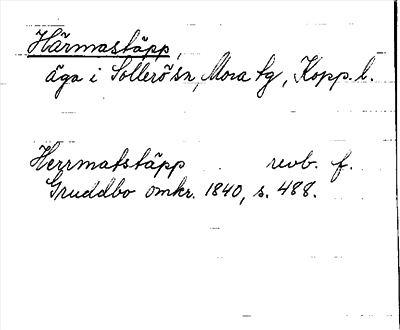 Härmastäpp,
äga i Sollerö sn, Mora tg, Kopp. l.
Herrmatstäpp revb. f.
Gruddbo omkr. 1840, s. 488.